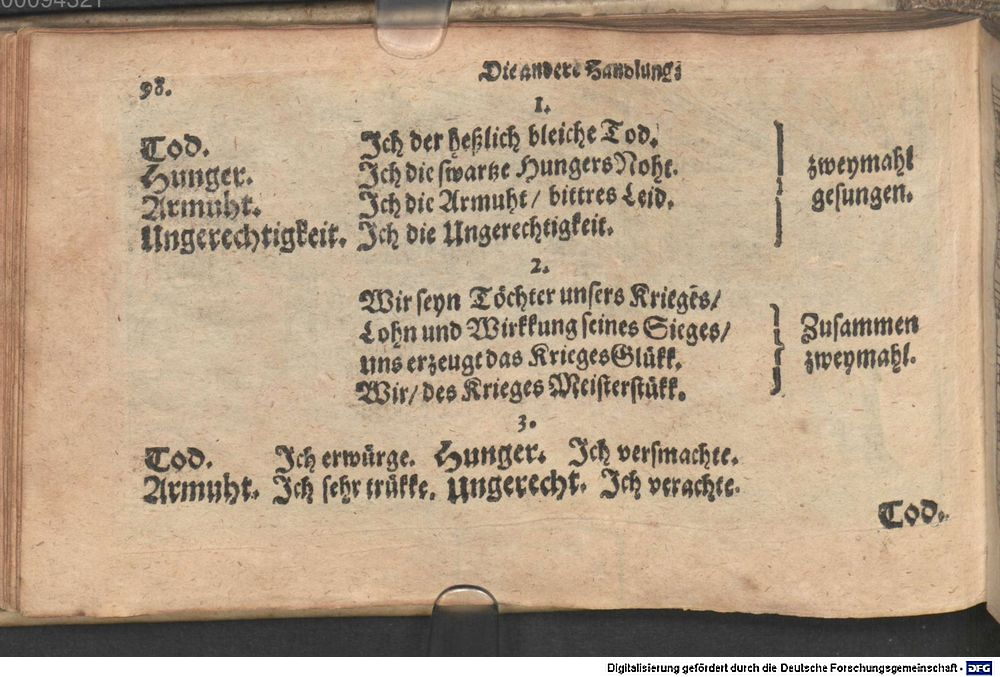 00094321
98.
Die andere Handlung:
1.
Tod. Ich der heßlich bleiche Tod.
Hunger. Ich die swartze HungersNoht.
Armuht. Ich die Armuht / bittres Leid.
Ungerechtigkeit. Ich die Ungerechtigkeit.
zweymahl
gesungen.
2.
Wir seyn Töchter unsers Krieges /
Lohn und Wirkkung seines Sieges /
uns erzeugt das KriegesGlükk.
Wir / des Krieges Meisterstükk.
Zusammen
zweymahl.
3.
Tod. Ich erwürge. Hunger. Ich versmachte.
Armuht. Ich sehr trükke. Ungerecht. Ich verachte.
Tod.
Digitalisierung gefördert durch die Deutsche Forschungsgemeinschaft - DFG